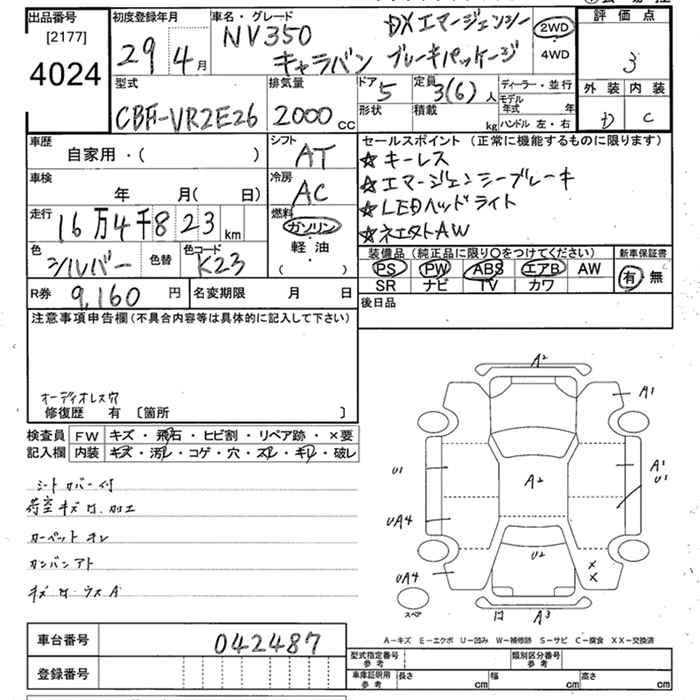 出品番号
[2177]
4024
初度登録年月
29年4月
車名・グレード
NV350 DXエマージェンシー
キャラバン ブレーキパッケージ
2WD
4WD
評価点
3
外装 内装
D C
型式
CBF-VR2E26
排気量
2000cc
ドア
5
定員
3(6)人
形状
積載
kg
ディーラー・並行
モデル年式 年
ハンドル 左・右
車歴
自家用・( )
シフト
AT
車検
年 月( 日)
冷房
AC
走行
16万4千823km
燃料
ガソリン
軽・油
( )
色
シルバー
色替
色コード
K23
R券 9,160円
名変期限 月 日
セールスポイント(正常に機能するものに限ります)
☆キーレス
☆エマージェンシーブレーキ
☆LEDヘッドライト
☆ネエストAW
装備品(純正品に限り〇をつけてください)
PS PW ABS エアB AW
SR ナビ TV カワ
新車保証書
有・無
後日品
注意事項申告欄(不具合内容等は具体的に記入して下さい)
オーディオレス穴
修復歴 有 〔箇所 〕
検査員記入欄
FW キズ・飛石・ヒビ割・リペア跡・×要
内装 キズ・汚レ・コゲ・穴・スレ・キレ・破レ
シートカバー付
荷室キズ凹加工
カーペットオレ
カンバンアト
キズ凹ウスA
A2
A1
U1
A2
A1
U1
UA4
U2
UA4
×
×
スペア
凹 A3
A-キズ E-エクボ U-凹み W-補修跡 S-サビ C-腐食 XX-交換済
車台番号 042487
登録番号
型式指定番号
参考
類別区分番号
参考
車庫証明用
参考
長さ cm 幅 cm 高さ cm